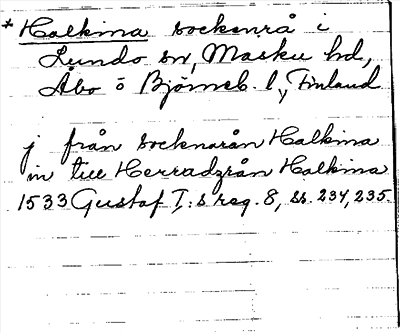 * Halkina sockenrå i
Lundo sn, Masku hd,
Åbo o Björneb. l, Finland
j från socknarån Halkina
in till Herradzrån Halkina
1533 Gustaf I:s reg. 8, ss. 234, 235.